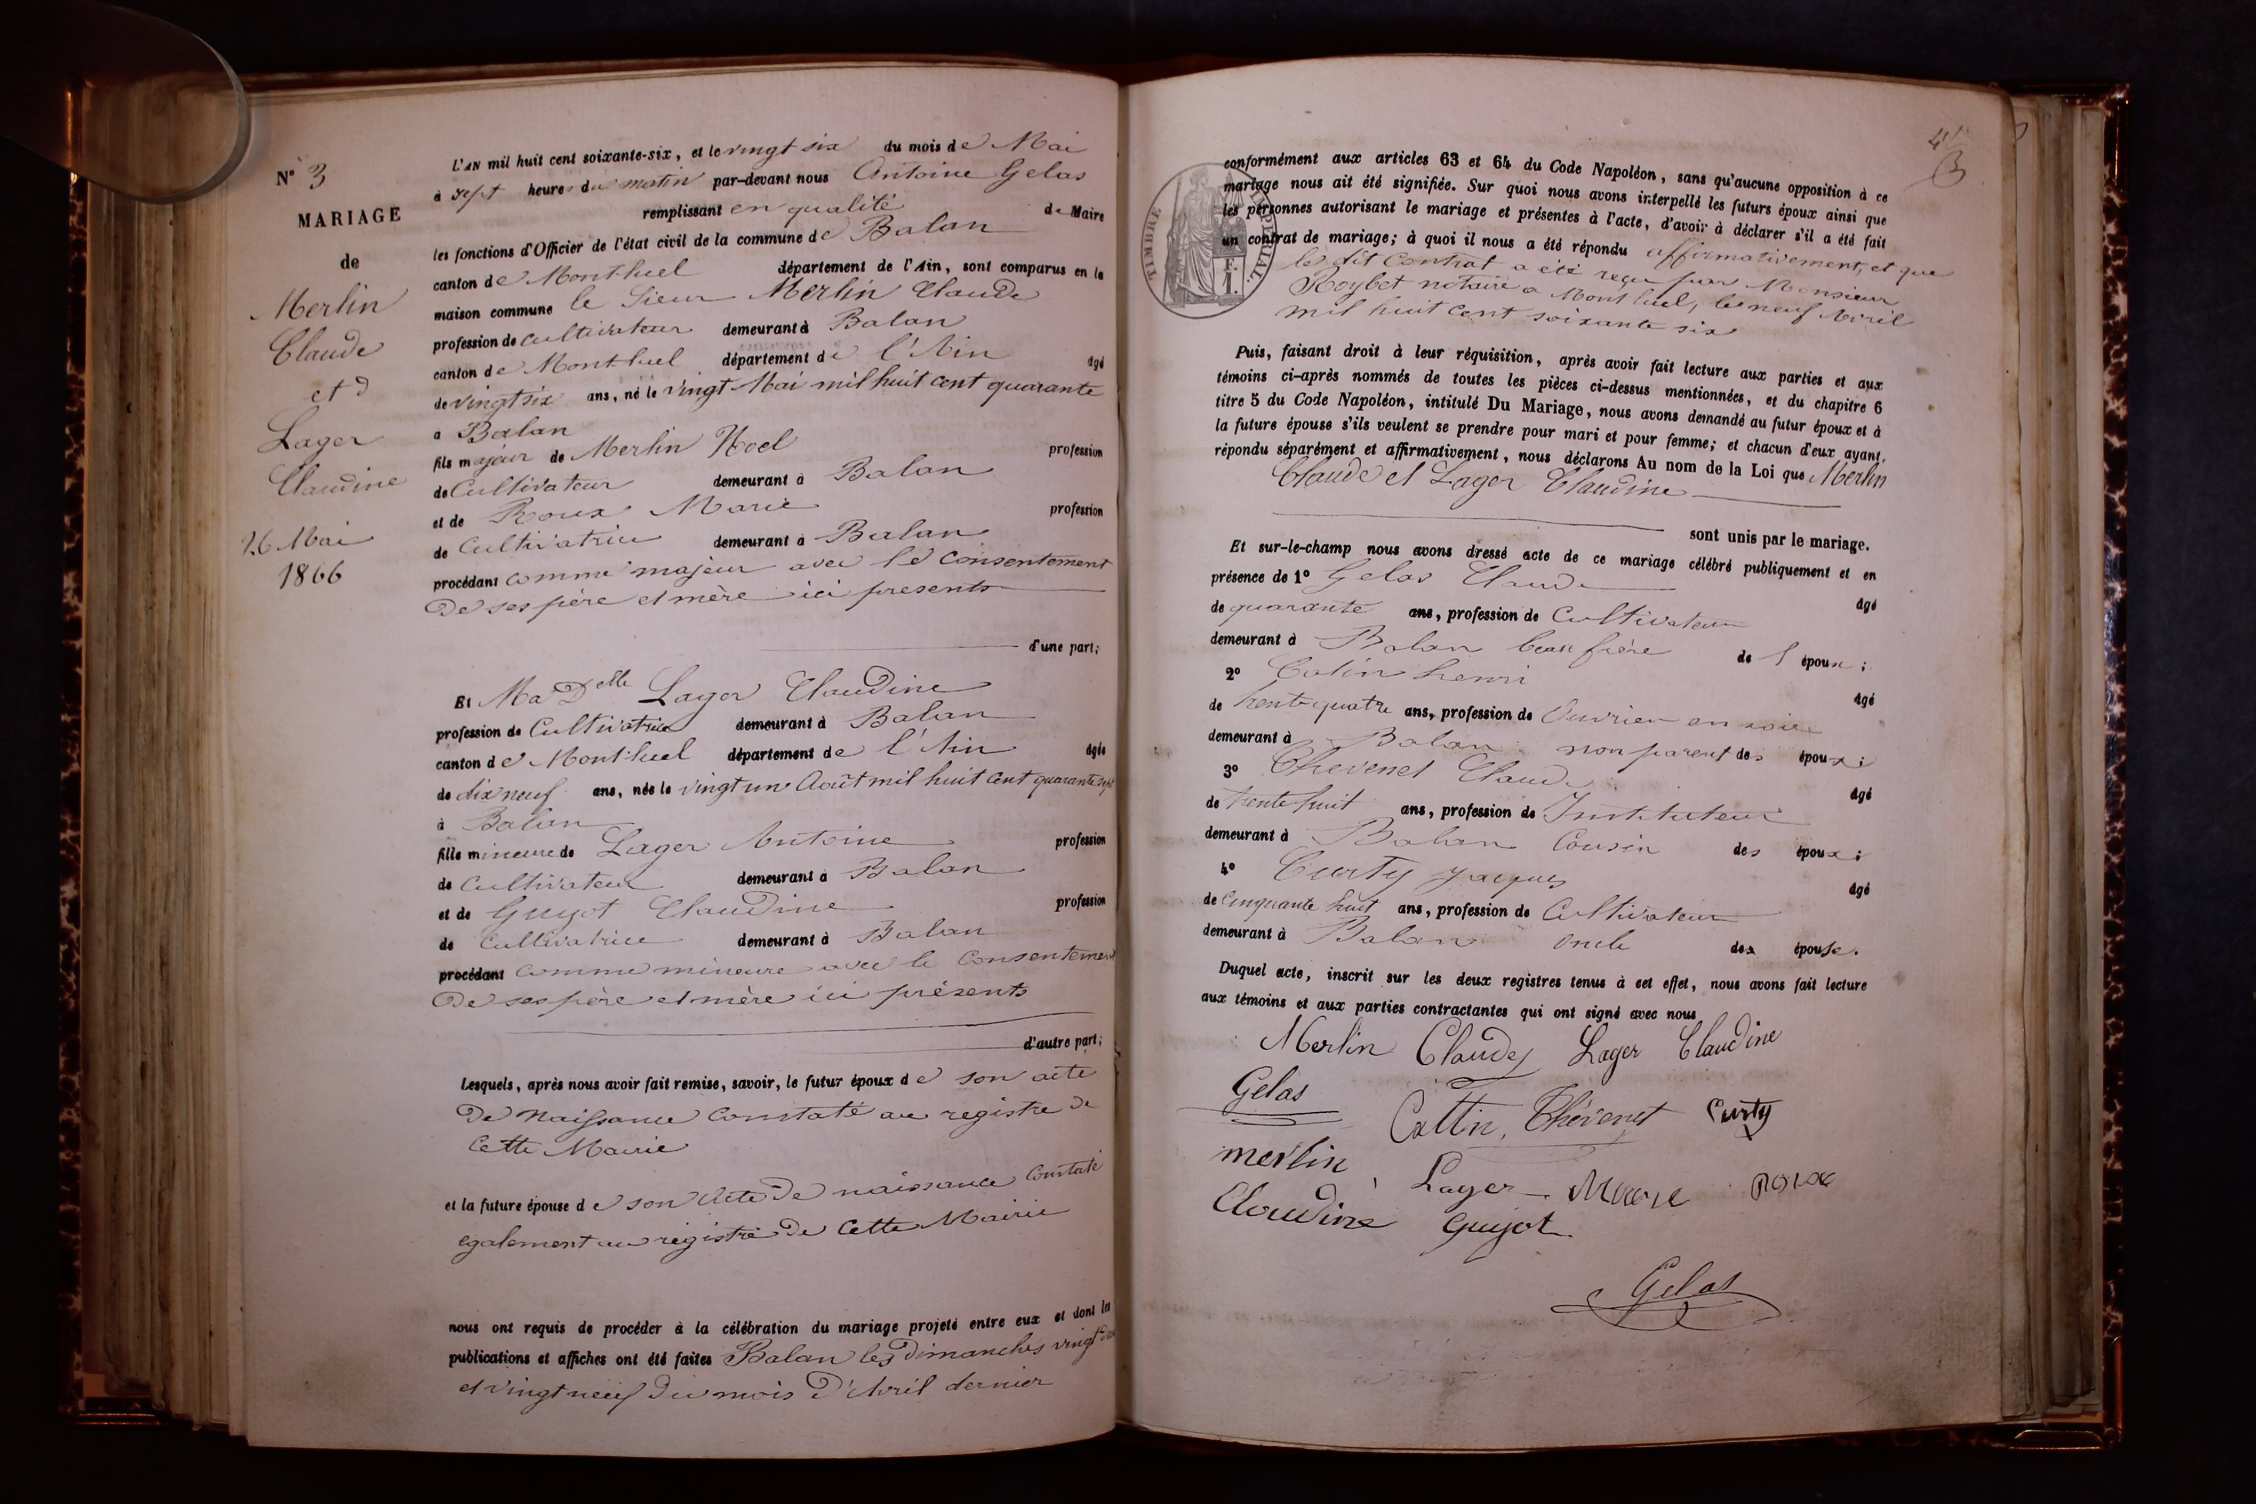 N° 3
MARIAGE
de
Merlin
Claude
et
Lager
Claudine
26 Mai
1866
L'AN mil huit cent soixante-six, et le vingt six du mois de Mai
à sept heures du matin par-devant nous Antoine Gelas
remplissant en qualité de Maire
les fonctions d'Officier de l'état civil de la commune de Balan
canton de Montluel département de l'Ain, sont comparus en la
maison commune le Sieur Merlin Claude
profession de Cultivateur demeurant à Balan
canton de Montluel département de l'Ain âgé
de vingt six ans, né le vingt Mai mil huit cent quarante
à Balan
fils majeur de Merlin Noel profession
de Cultivateur demeurant à Balan
et de Roux Marie profession
de Cultivatrice demeurant à Balan
procédant comme majeur avec le consentement
de ses père et mère ici presents
d'une part;
Et Ma Delle Lager Claudine
profession de Cultivatrice demeurant à Balan
canton de Montluel département de l'Ain âgée
de dix neuf ans, née le vingt un Août mil huit cent quarante sept
à Balan
fille mineure de Lager Antoine profession
de Cultivateur demeurant à Balan
et de Guyot Claudine profession
de Cultivatrice demeurant à Balan
procédant comme mineure avec le Consentement
de ses père et mère ici présents
d'autre part;
Lesquels, après nous avoir fait remise, savoir, le futur époux de son acte
de naissance constaté au registre de
cette Mairie
et la future épouse de son Acte de naissance constaté
egalement au registre de cette Mairie
nous ont requis de procéder à la célébration du mariage projeté entre eux et dont les
publications et affiches ont été faites Balan les dimanches vingt deux
et vingt neuf du mois d'Avril dernier
3
TIMBRE IMPÉRIAL
conformément aux articles 63 et 64 du Code Napoléon, sans qu'aucune opposition à ce
mariage nous ait été signifiée. Sur quoi nous avons interpellé les futurs époux ainsi que
les personnes autorisant le mariage et présentes à l'acte, d'avoir à déclarer s'il a été fait
un contrat de mariage; à quoi il nous a été répondu affirmativement, et que
le dit Contrat a été reçu par Monsieur
Roybet notaire a Montluel, le neuf Avril
mil huit cent soixante six
Puis, faisant droit à leur réquisition, après avoir fait lecture aux parties et aux
témoins ci-après nommés de toutes les pièces ci-dessus mentionnées, et du chapitre 6
titre 5 du Code Napoléon, intitulé Du Mariage, nous avons demandé au futur époux et à
la future épouse s'ils veulent se prendre pour mari et pour femme; et chacun d'eux ayant
répondu séparément et affirmativement, nous déclarons Au nom de la Loi que Merlin
Claude et Lager Claudine
sont unis par le mariage.
Et sur-le-champ nous avons dressé acte de ce mariage célébré publiquement et en
présence de 1° Gelas Claude âgé
de quarante ans, profession de Cultivateur
demeurant à Balan beau frère de l'époux;
2° Cotin henri âgé
de trente quatre ans, profession de Ouvrier en soie
demeurant à Balan non parent des époux;
3° Thevenet Claude âgé
de trente huit ans, profession de Instituteur
demeurant à Balan Cousin des époux;
4° Curty Jacques âgé
de Cinquante huit ans, profession de Cultivateur
demeurant à Balan oncle de épouse.
Duquel acte, inscrit sur les deux registres tenus à cet effet, nous avons fait lecture
aux témoins et aux parties contractantes qui ont signé avec nous
Merlin Claude Lager Claudine
Gelas Cottin Thévenet Curty
merlin Lager Marie roux
Claudine Guyot
Gelas